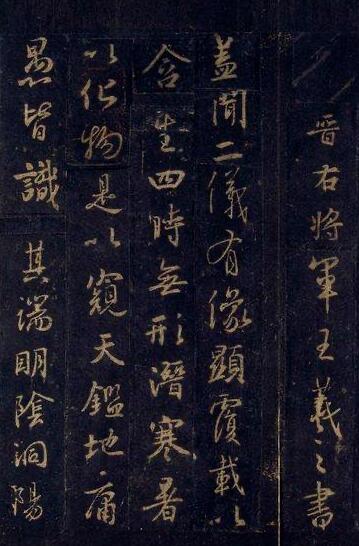 晉右將軍王羲之書
蓋聞二儀有像顯覆載以
含生四時無形潛寒暑
以化物是以窺天鑑地庸
愚皆識其端明陰洞陽